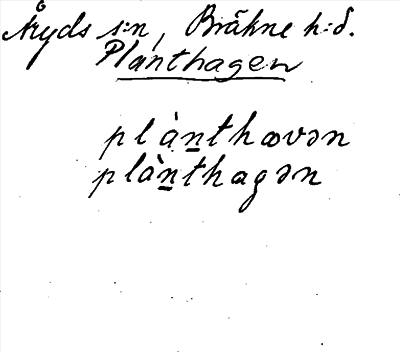 Åryds s:n, Bräkne h:d.
Planthagen
plànthævən
plànthagən